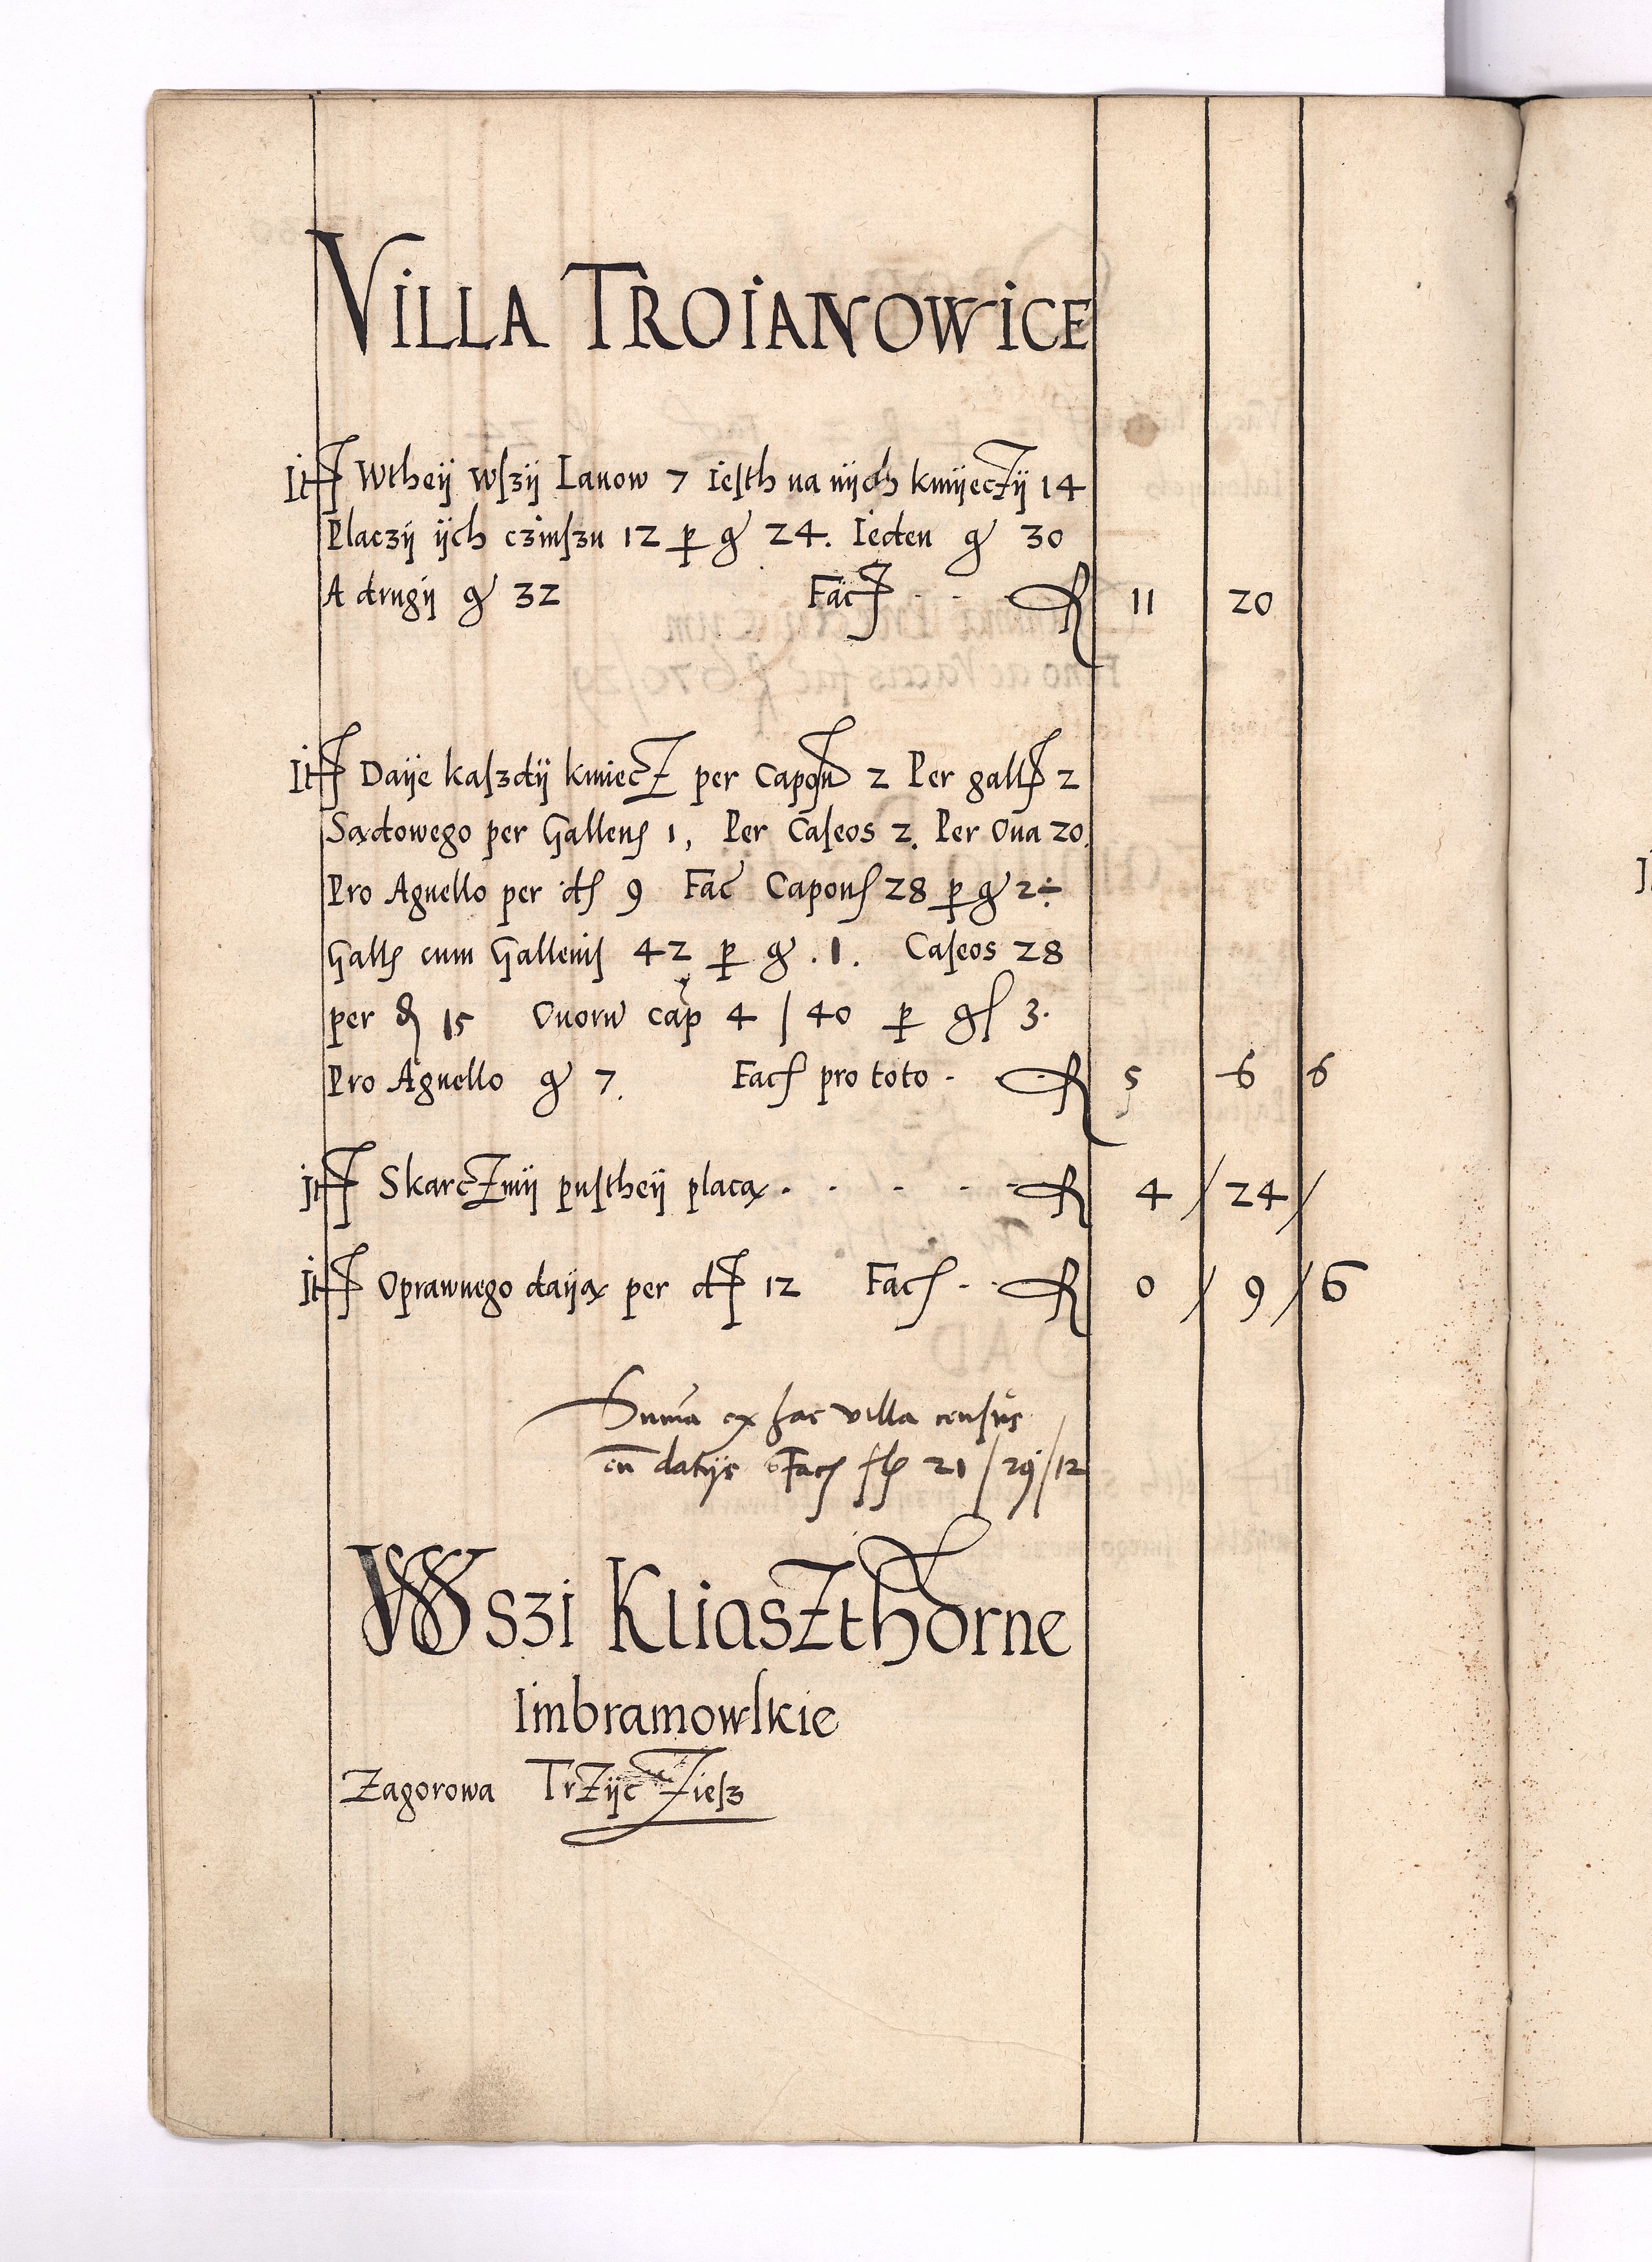 VILLA TROIANOWICE
It Wtheÿ wſzÿ Lanow 7 ieſth na nÿch kmÿeczÿ 14
Placzÿ ÿch czinſzu 12 p gͬ 24. Ieden gͬ 30
A drugÿ gͬ 32 Fac fl 11 20
It Daÿe kaſzdÿ kmiecz per Capon 2 Per gall 2
Sądowego per Gallen 1, Per Caſeos 2. Per Oua 20.
Pro Agnello per d 9 Fac Capon 28 p g 2÷
Gall cum Gallenis 42 p g .1. Caſeos 28
per d 15 Ouoru cap 4 / 40 p g 3.
Pro Agnello g 7. Fac pro toto - fl 5 6 6
It Skarczmÿ puſtheÿ placą - - - - fl 4 / 24 /
It Oprawnego daÿą per d 12 Fac - - fl 0 / 9 / 6
Suma ex hac villa cenſus
cu datÿs Fac fl 21 / 29 / 12
Wszi Kliaszthorne
Imbramowſkie
Zagorowa Trzÿczieſz